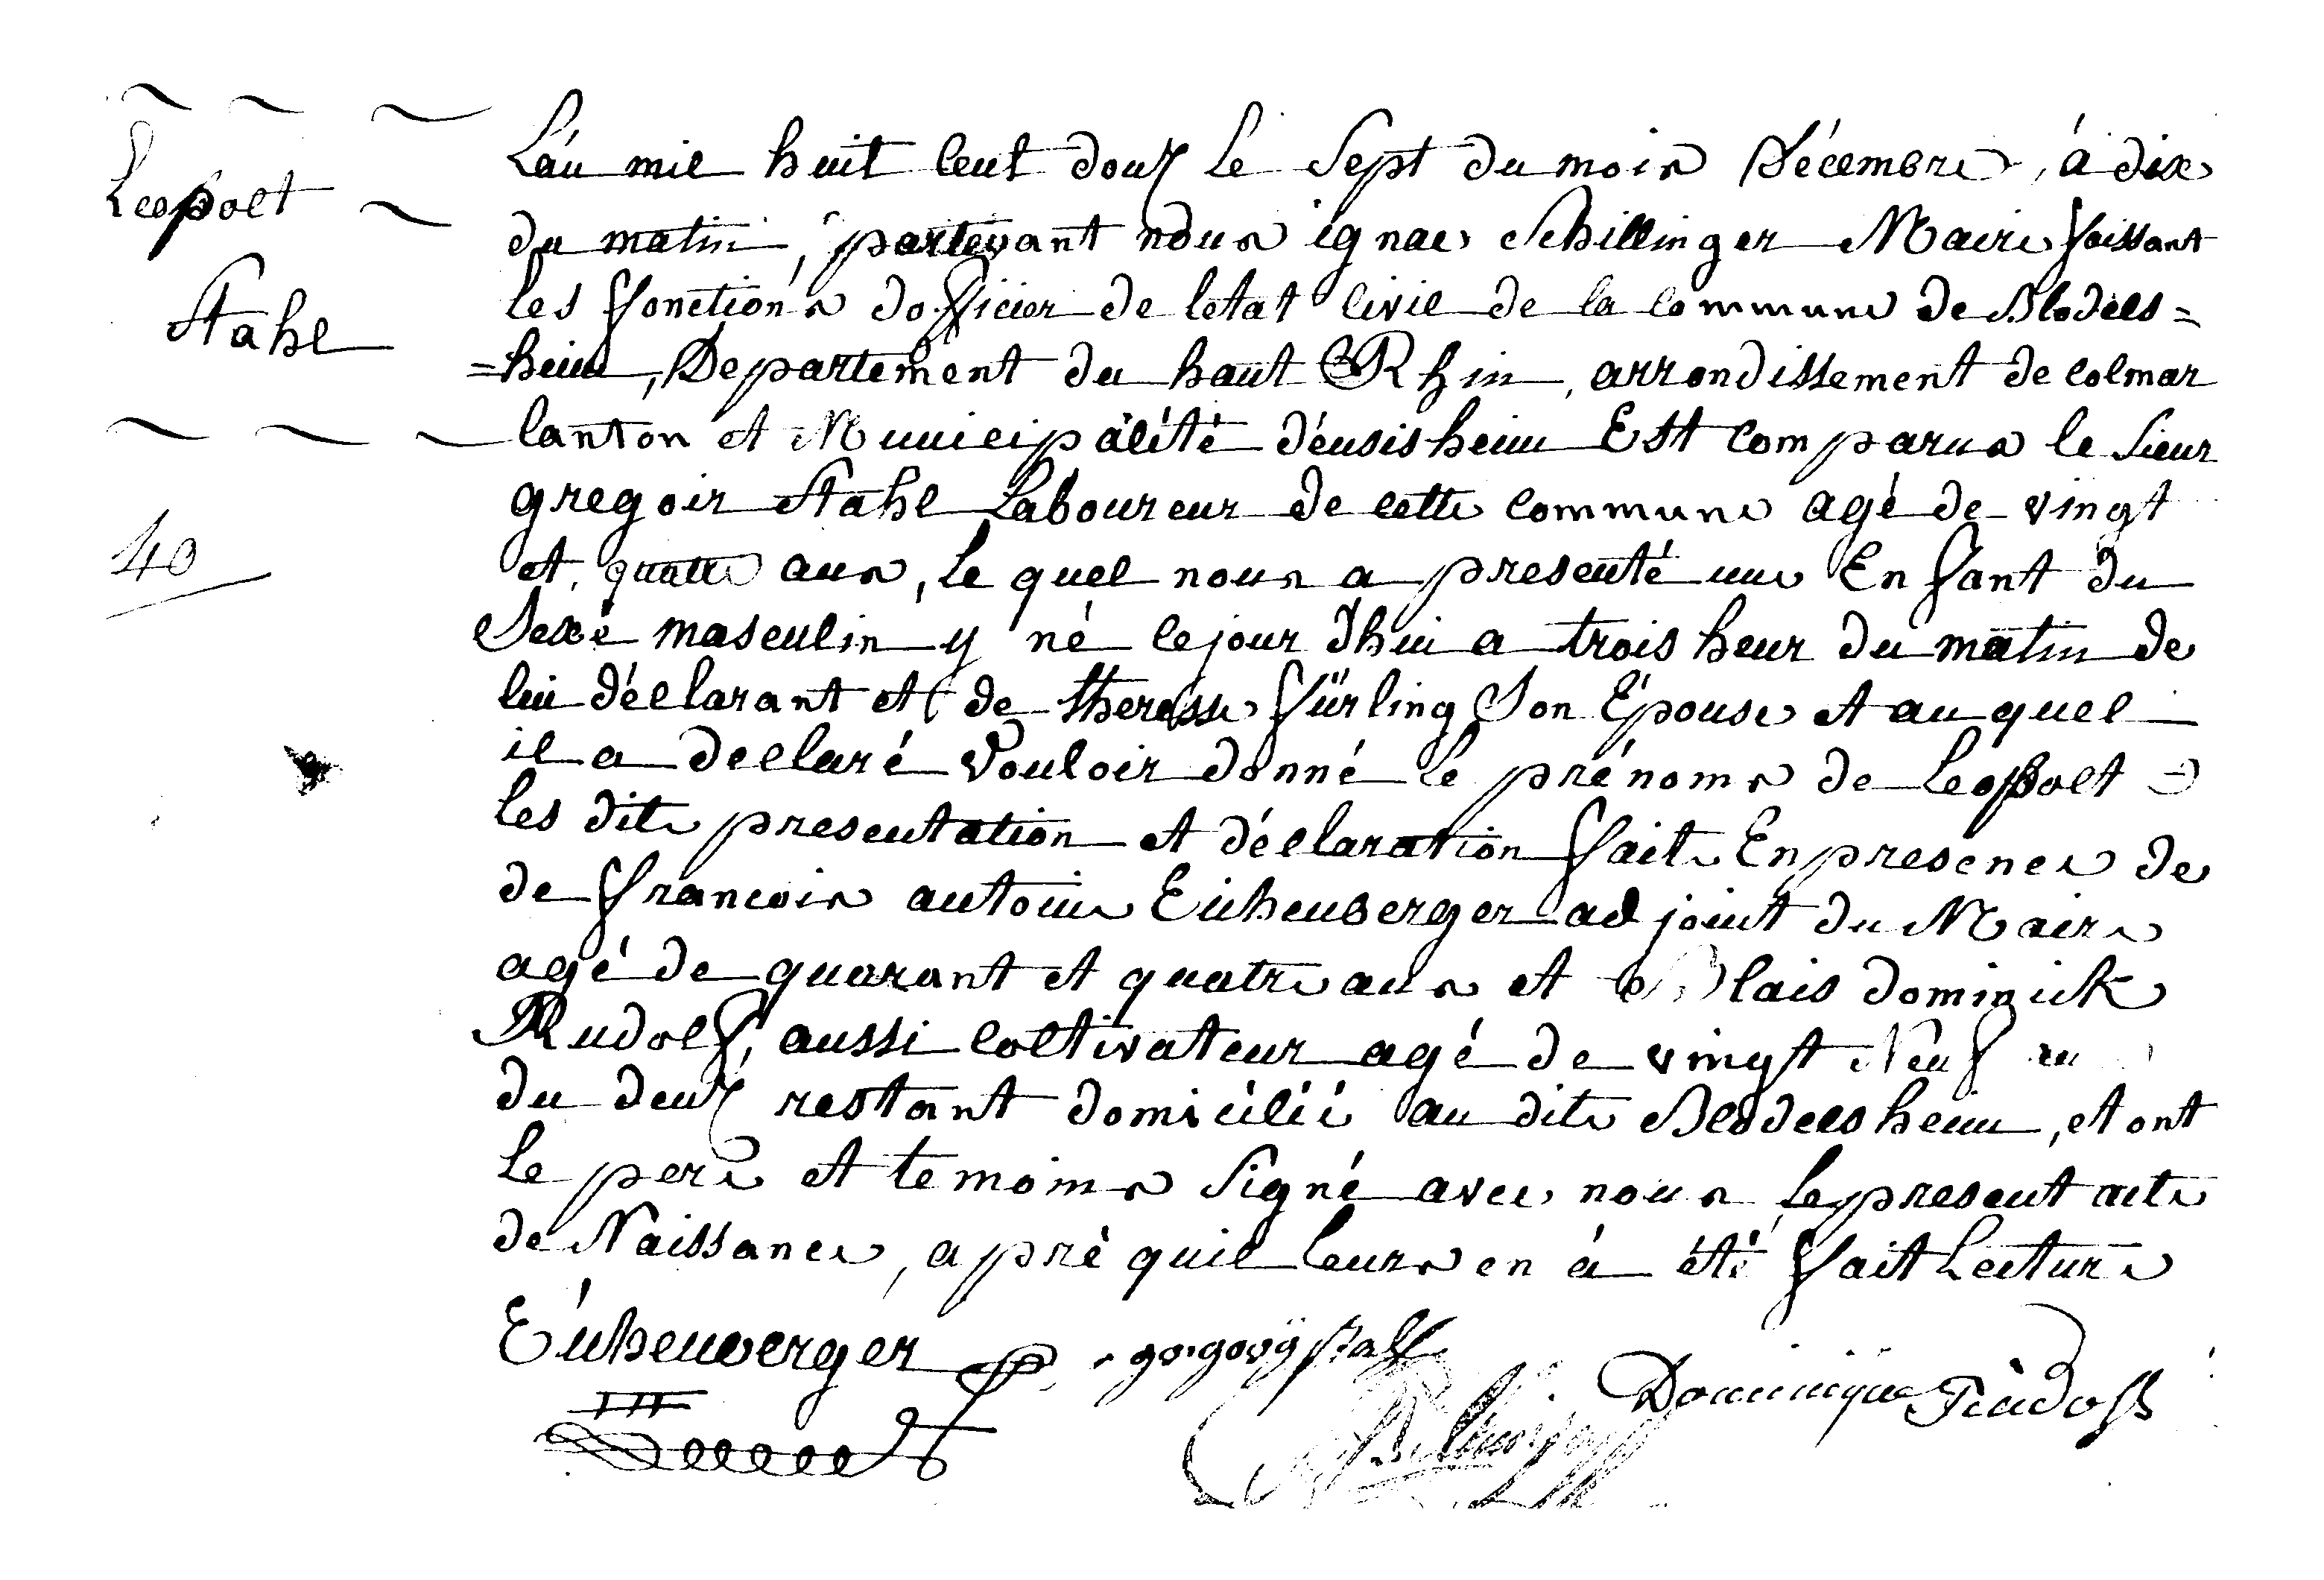 Leopolt
Stahl
40
L'an mil huit Cent douz le Sept du mois Décembre, à dix
du matin, partevant nous ignace Schillinger Maire faissant
les fonctions dofficier de letat Civil de la Commune de Blodels=
=heim, Departement du haut Rhin, arrondissement de Colmar
Canton et Municipalité d'ensisheim Est Comparus le Sieur
gregoir Stahl Laboureur de Cette Commune agé de vingt
et quattre ans, le quel nous a presenté une Enfant du
Sexe masculin y né le jour d'hui a trois heur du matin de
lui déclarant et de theresse fürling Son Epouse et au quel
il a declaré Vouloir donné le prénoms de Leopolt
les dite presentation et déclaration faite En presence de
de francois antoine Eichenberger adjoint du Maire
agé de quarant et quatre ans et Blais dominick
Rudolf, aussi Coltivateur agé de vingt Neuf
du deux restant domicilié au dite Blodelsheim, et ont
le pere et temoins Signé avec nous le present acte
de Naissance, apré quil leurs en à été fait Lecture
Eichenberger gregory stahl
Dominique Rudolf